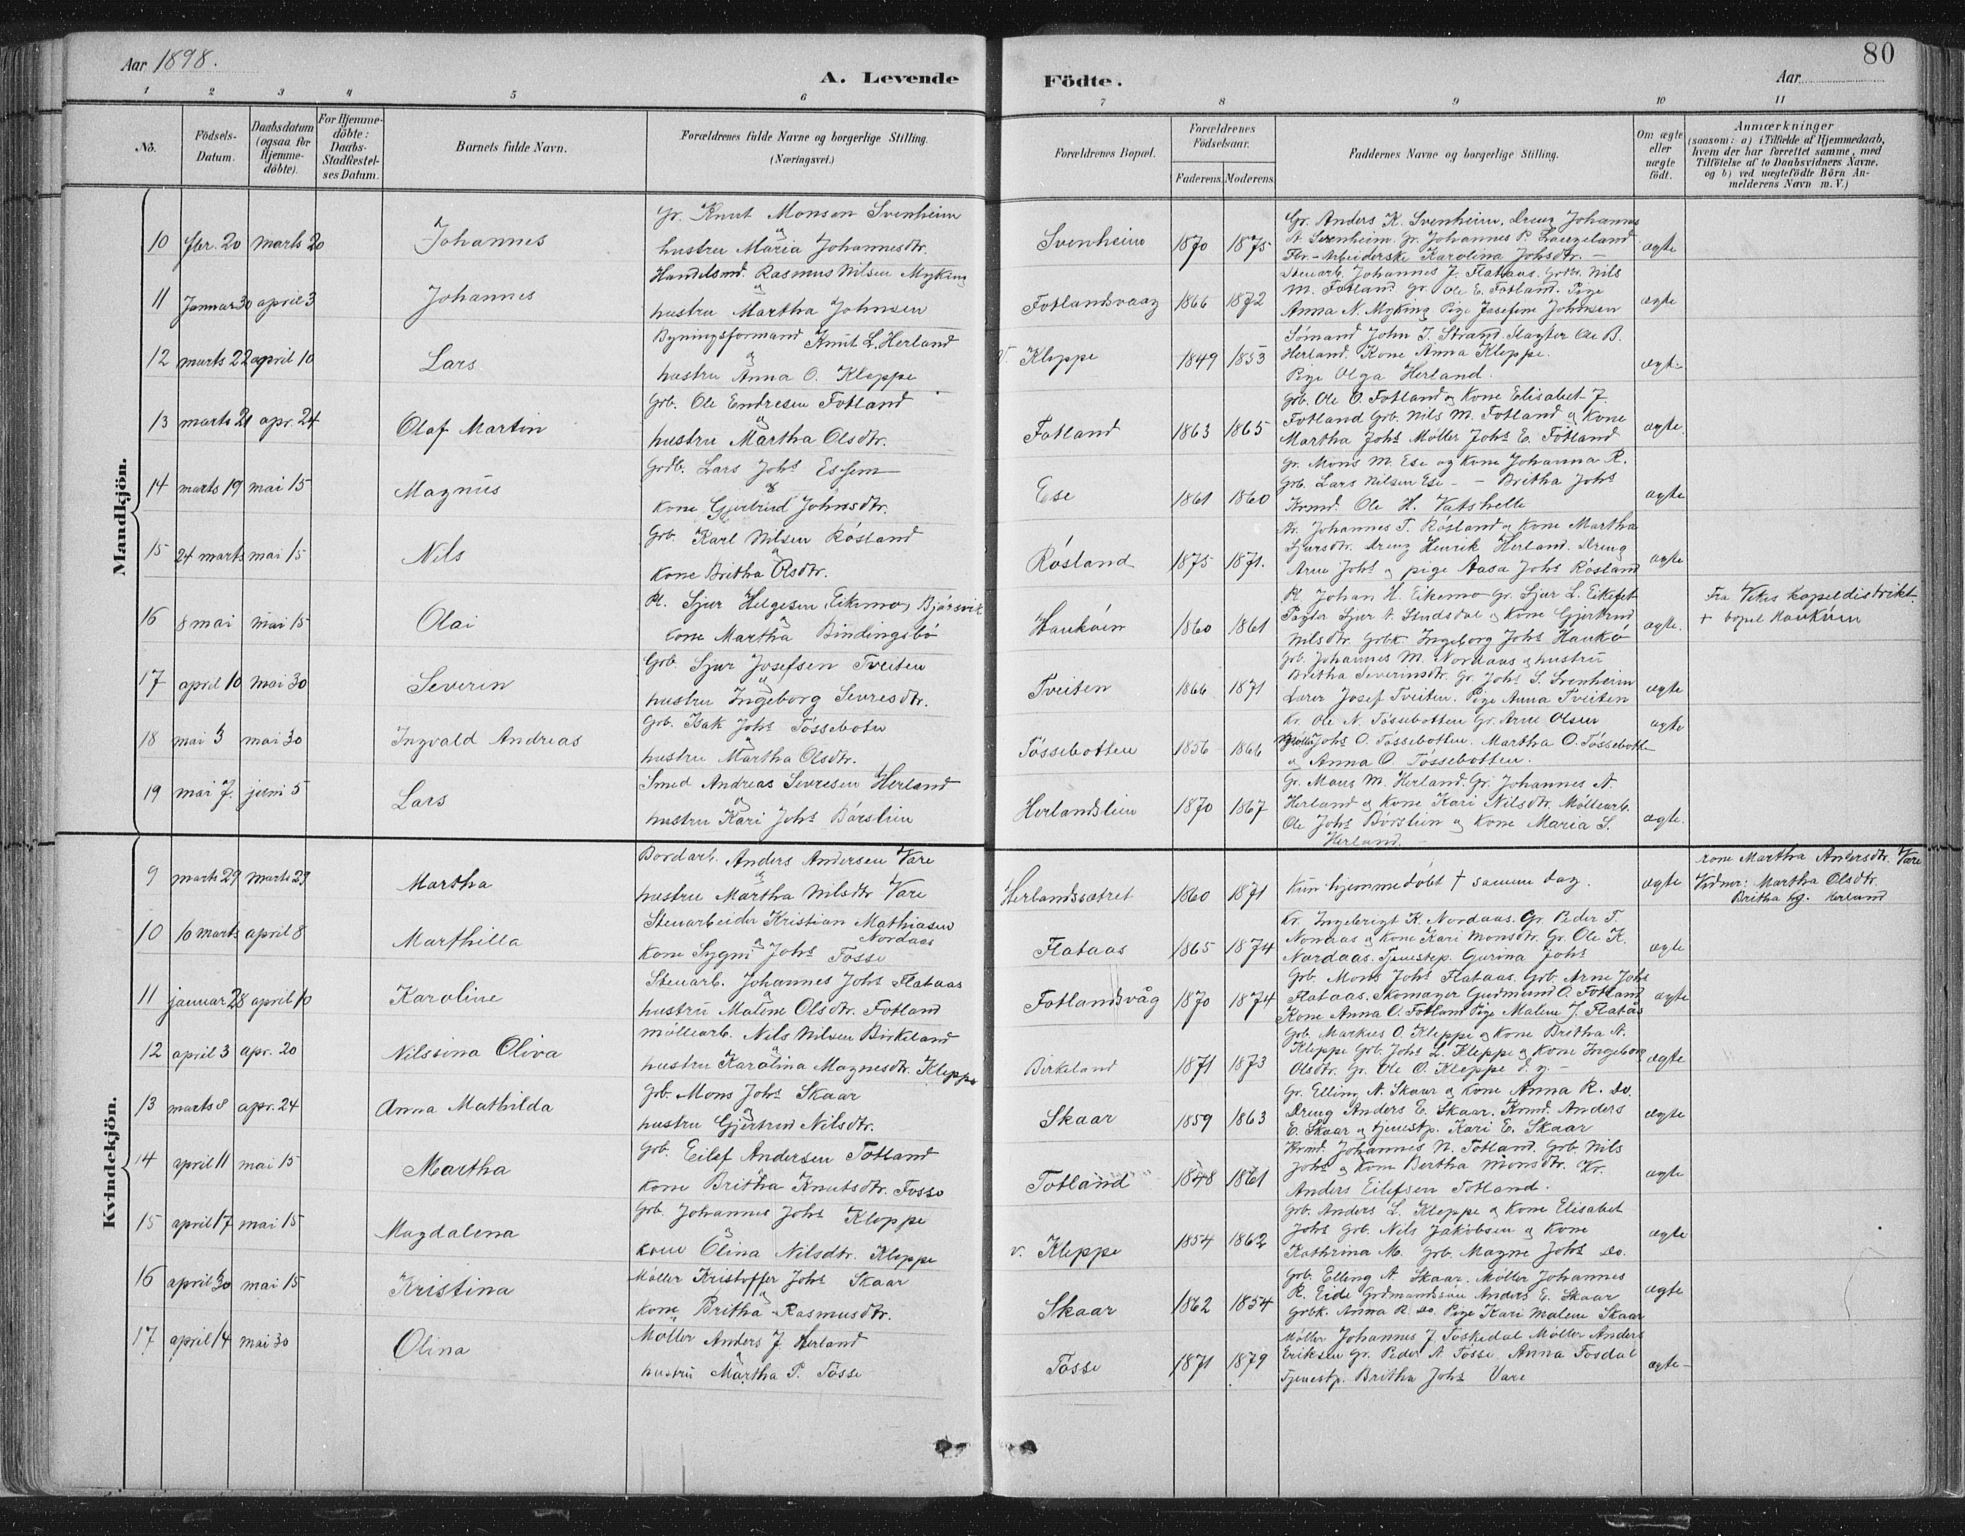 Aar 1898.
A. Levende Födte.
Aar
80
1 2 3 4 5 6 7 8 9 10 11
No.
Födsels-Datum.
Daabsdatum (ogsaa for Hjemme-döbte).
For Hjemme-döbte: Daabs-Stadfæstel-ses Datum.
Barnets fulde Navn.
Forældrenes fulde Navne og borgerlige Stilling. (Næringsvei.)
Forældrenes Bopæl.
Forældrenes Födselsaar.
Faderens. Moderens.
Faddernes Navne og borgerlige Stilling.
Om ægte eller uægte födt.
Anmærkninger
(saasom: a) i Tilfælde af Hjemmedaab, hvem der har forrettet samme, med Tilföielse af to Daabsvidners Navne, og b) ved uægtefödte Börn An-melderens Navn m. V.)
Mandkjön.
10 fbr. 20 marts 20 Johannes
Gr. Knut Monsen Svenheim
&
hustru Maria Johannesdtr.
Svenheim 1870 1875
Gr. Anders K. Svenheim. Dreng Johannes
A. Svenheim. Gr. Johannes P. Laugeland
Fbr.-Arbeiderske Karolina Johsdtr. -
ægte
11 Januar 30 april 3 Johannes
Handelsmd. Rasmus Nilsen Myking
&
hustru Martha Johnsen
Fotlandsvaag 1866 1872
Stenarb. Johannes J. Flataas. Grbr. Nils
M. Fotland Gr. Ole E. Fotland. Pige
Anna N. Myking Pige Josefine Johnsen
ægte
12 marts 22 april 10 Lars
Bygningsformand Knut L. Herland
&
hustru Anna O. Kleppe
v. Kleppe 1849 1853
Sømand John T. Strand. Slagter Ole B.
Herland. Kone Anna Kleppe.
Pige Olga Herland.
ægte
13 marts 21 apr. 24 Olaf Martin
Grb. Ole Endresen Fotland
&
hustru Martha Olsdtr.
Fotland 1863 1865
Grb. Ole O. Fotland & Kone Elisabet J.
Fotland Grb. Nils M. Fotland & Kone
Martha Johs Møller Johs E. Fotland
ægte.
14 marts 19 mai 15 Magnus
Grdb. Lars Johs Essem
&
Kone Gjertrud Johnsdtr.
Ese 1861 1860
Gr. Mons M. Ese og Kone Johanna R.
Grb. Lars Nilsen Ese - - Britha Johs
Krmd. Ole H. Vatshelle
ægte
15 24 marts mai 15 Nils
Grb. Karl Nilsen Røsland
&
Kone Britha Olsdtr.
Røsland 1875 1871.
Gr. Johannes T. Røsland & Kone Martha
Sjursdtr. Dreng Henrik Herland. Dreng
Arne Johs & pige Aasa Johs Røsland
ægte
16 8 mai mai 15 Olai
Pl. Sjur Helgesen Eikemo, Bjørsvik
&
Cone Martha Bindingsbø
Haukøen 1860 1861
Pl. Johan H. Eikemo Gr. Sjur L. Eikefet
Pagter Sjur A. & Kone Gjertrud
Nilsdtr. Grbk. Ingeborg Johs Haukø
ægte.
Fra kapeldistrikt.
+ bopel Haukøen
17 april 10 mai 30 Severin
Grb. Sjur Josefsen Tveiten
&
hustru Ingeborg Sevresdtr.
Tveiten 1866 1871
Grb. Johannes M. Nordaas & hustru
Britha Severinsdtr. Gr. Johs S. Svenheim
Lærer Josef Tveiten. Pige Anna Tveiten
ægte
18 mai 3 mai 30 Ingvald Andreas
Grb. Isak Johs Tøsseboten
&
hustru Martha Olsdtr.
Tøssebotten 1856 1866
Kr. Ole N. Tøssebotten Gr. Arne Olsen
Møller Johs O. Tøssebotten. Martha O. Tøssebotten
& Anna O. Tøssebotten.
ægte
19 mai 7. juni 5 Lars
Smed Andreas Sevresen Herland
&
hustru Kari Johs Børslien
Herlandslien 1870 1867
Gr. Mons M. Herland. Gr. Johannes A.
Herland & Kone Kari Nilsdtr. Møllearb.
Ole Johs Børslien & Kone Maria S.
Herland.
ægte.
Kvindekjön.
9 marts 29 marts 29 Martha
Bordarb. Anders Andersen Vare
&
hustru Martha Nilsdtr Vare
Herlandssætret 1860 1871
Kun hjemmedøbt † samme dag.
ægte
Kone Martha Andersdtr. Vare
Vidner: Martha Olsdtr.
Britha Herland
10 10 marts april 8 Marthilla
Stenarbeider Kristian Mathiasen
Nordaas
&
Kone Sygni Johs Fosse
Flataas 1865 1874
Kr. Ingebrigt K. Nordaas. Gr. Peder T.
Nordaas & Kone Kari Monsdtr. Gr. Ole K.
Nordaas. Tjenestep. Gurina Johs
ægte
11 januar 28 april 10 Karoline
Stenarb. Johannes Johs Flataas
&
hustru Malene Olsdtr. Fotland
Fotlandsvåg 1870 1874
Grb. Mons Johs Flataas. Grb. Arne Johs
Flataas. Skomager Gudmund O. Fotland
Kone Anna O. Fotland Pige Malene J. Flatås
ægte
12 april 3 apr. 20 Nilssina Oliva
Møllearb. Nils Nilsen Birkeland
&
hustru Karolina Magnesdtr. Kleppe
Birkeland 1871 1873
Grb. Markus O. Kleppe & Kone Britha N.
Kleppe Grb. Johs L. Kleppe & Kone Ingeborg
Olsdtr. Gr. Ole O. Kleppe d. y. -
ægte
13 marts 8 apr. 24 Anna Mathilda
Grb. Mons Johs Skaar
&
hustru Gjertrud Nilsdtr.
Skaar 1859 1863
Gr. Elling A. Skaar & Kone Anna R. Do.
Dreng Anders E. Skaar. Krmd. Anders
E. Skaar & tjenestp. Kari E. Skaar
ægte
14 april 11 mai 15 Martha
Grb. Eilef Andersen Totland
&
Kone Britha Knutsdtr. Fosse
Totland 1848 1861
Krmd. Johannes N. Totland. Grb. Nils
Johs & Kone Bertha Monsdtr. Kr.
Anders Eilefsen Totland.
ægte
15 april 17 mai 15 Magdalena
Grb. Johannes Johs Kleppe
&
Kone Olina Nilsdtr. Kleppe
v. Kleppe 1854 1862
Grb. Anders L. Kleppe & Kone Elisabet
Johs Grb. Nils Jakobsen & Kone
Kathrina M. Grb. Magne Johs Do.
ægte
16 april 30 mai 15 Kristina
Møller Kristoffer Johs Skaar
&
Kone Britha Rasmusdtr.
Skaar 1862 1854
Grb. Elling A. Skaar. Møller Johannes
R. Eide Grdmandssøn Anders E. Skaar
Grbk. Anna R. Do. Pige Kari Malene Skaar
ægte
17 april 14 mai 30 Olina
Møller Anders J Herland
&
hustru Martha P. Tøsse
Tøsse 1871 1879
Møller Johannes J. Toskedal Møller Anders
Eriksen Gr. Peder A Tøsse Anna Fosdal
Tjenestp. Britha Johs Vare
ægte